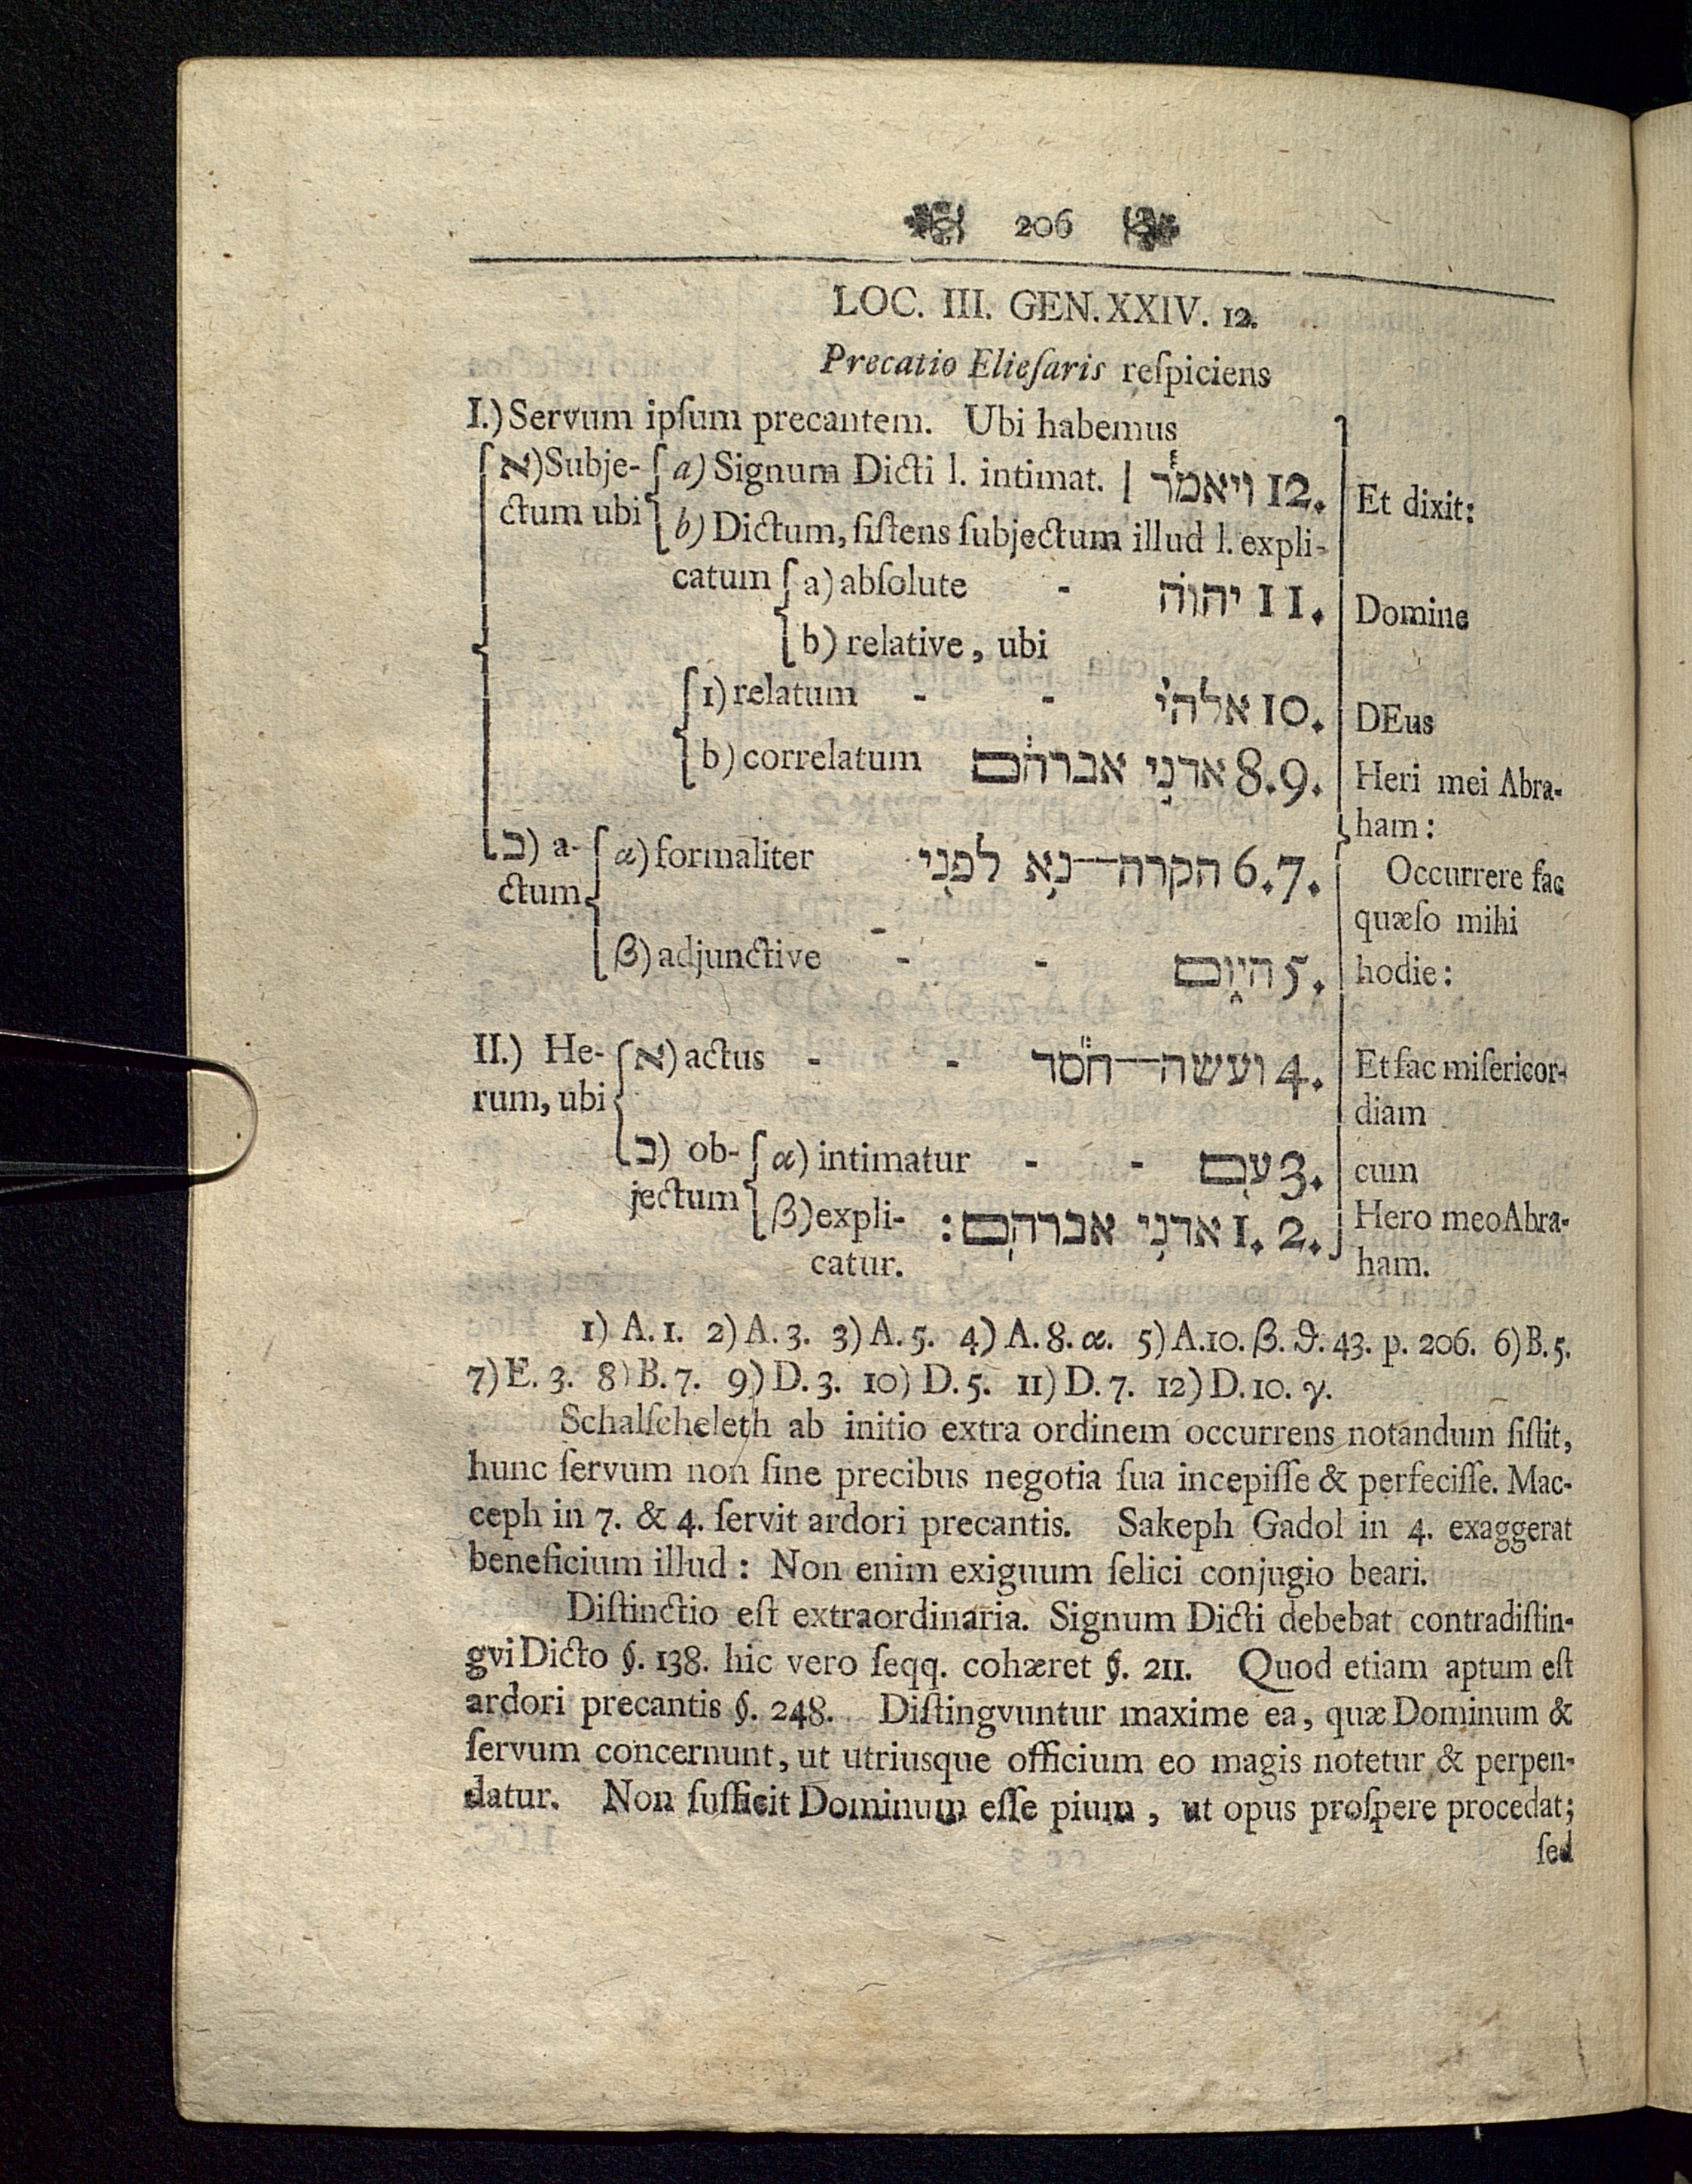 206
LOC. III. GEN. XXIV. 12.
Precatio Elieſaris reſpiciens
I.) Servum ipſum precantem. Ubi habemus
א) Subje- a) Signum Dicti l. intimat. | ויאמר֓ 12. Et dixit:
ctum ubi b) Dictum, ſiſtens ſubjectum illud l. expli-
catum a) abſolute - יהוה 11. Domine
b) relative, ubi
1) relatum - - אלהי 10. DEus
b) correlatum אדני אברהם 8. 9. Heri mei Abra-
ham:
ב) a- α) formaliter הקרה—נא לפני 6. 7. Occurrere fac
ctum quæſo mihi
β) adjunctive - - היום 5. hodie:
II.) He- א) actus - - ועשה—חסד 4. Et fac miſericor-
rum, ubi diam
ב) ob- α) intimatur - - עם 3. cum
jectum β) expli- אדני אברהם: 1. 2. Hero meo Abra-
catur. ham.
1) A. 1. 2) A. 3. 3) A. 5. 4) A. 8. α. 5) A. 10. β. ϑ. 43. p. 206. 6) B. 5.
7) E. 3. 8) B. 7. 9) D. 3. 10) D. 5. 11) D. 7. 12) D. 10. γ.
Schalſcheleth ab initio extra ordinem occurrens notandum ſiſtit,
hunc ſervum non ſine precibus negotia ſua incepiſſe & perfeciſſe. Mac-
ceph in 7. & 4. ſervit ardori precantis. Sakeph Gadol in 4. exaggerat
beneficium illud: Non enim exiguum felici conjugio beari.
Diſtinctio eſt extraordinaria. Signum Dicti debebat contradiſtin-
gvi Dicto §. 138. hic vero ſeqq. cohæret §. 211. Quod etiam aptum eſt
ardori precantis §. 248. Diſtingvuntur maxime ea, quæ Dominum &
ſervum concernunt, ut utriusque officium eo magis notetur & perpen-
datur. Non ſufficit Dominum eſſe pium, ut opus proſpere procedat;
ſed